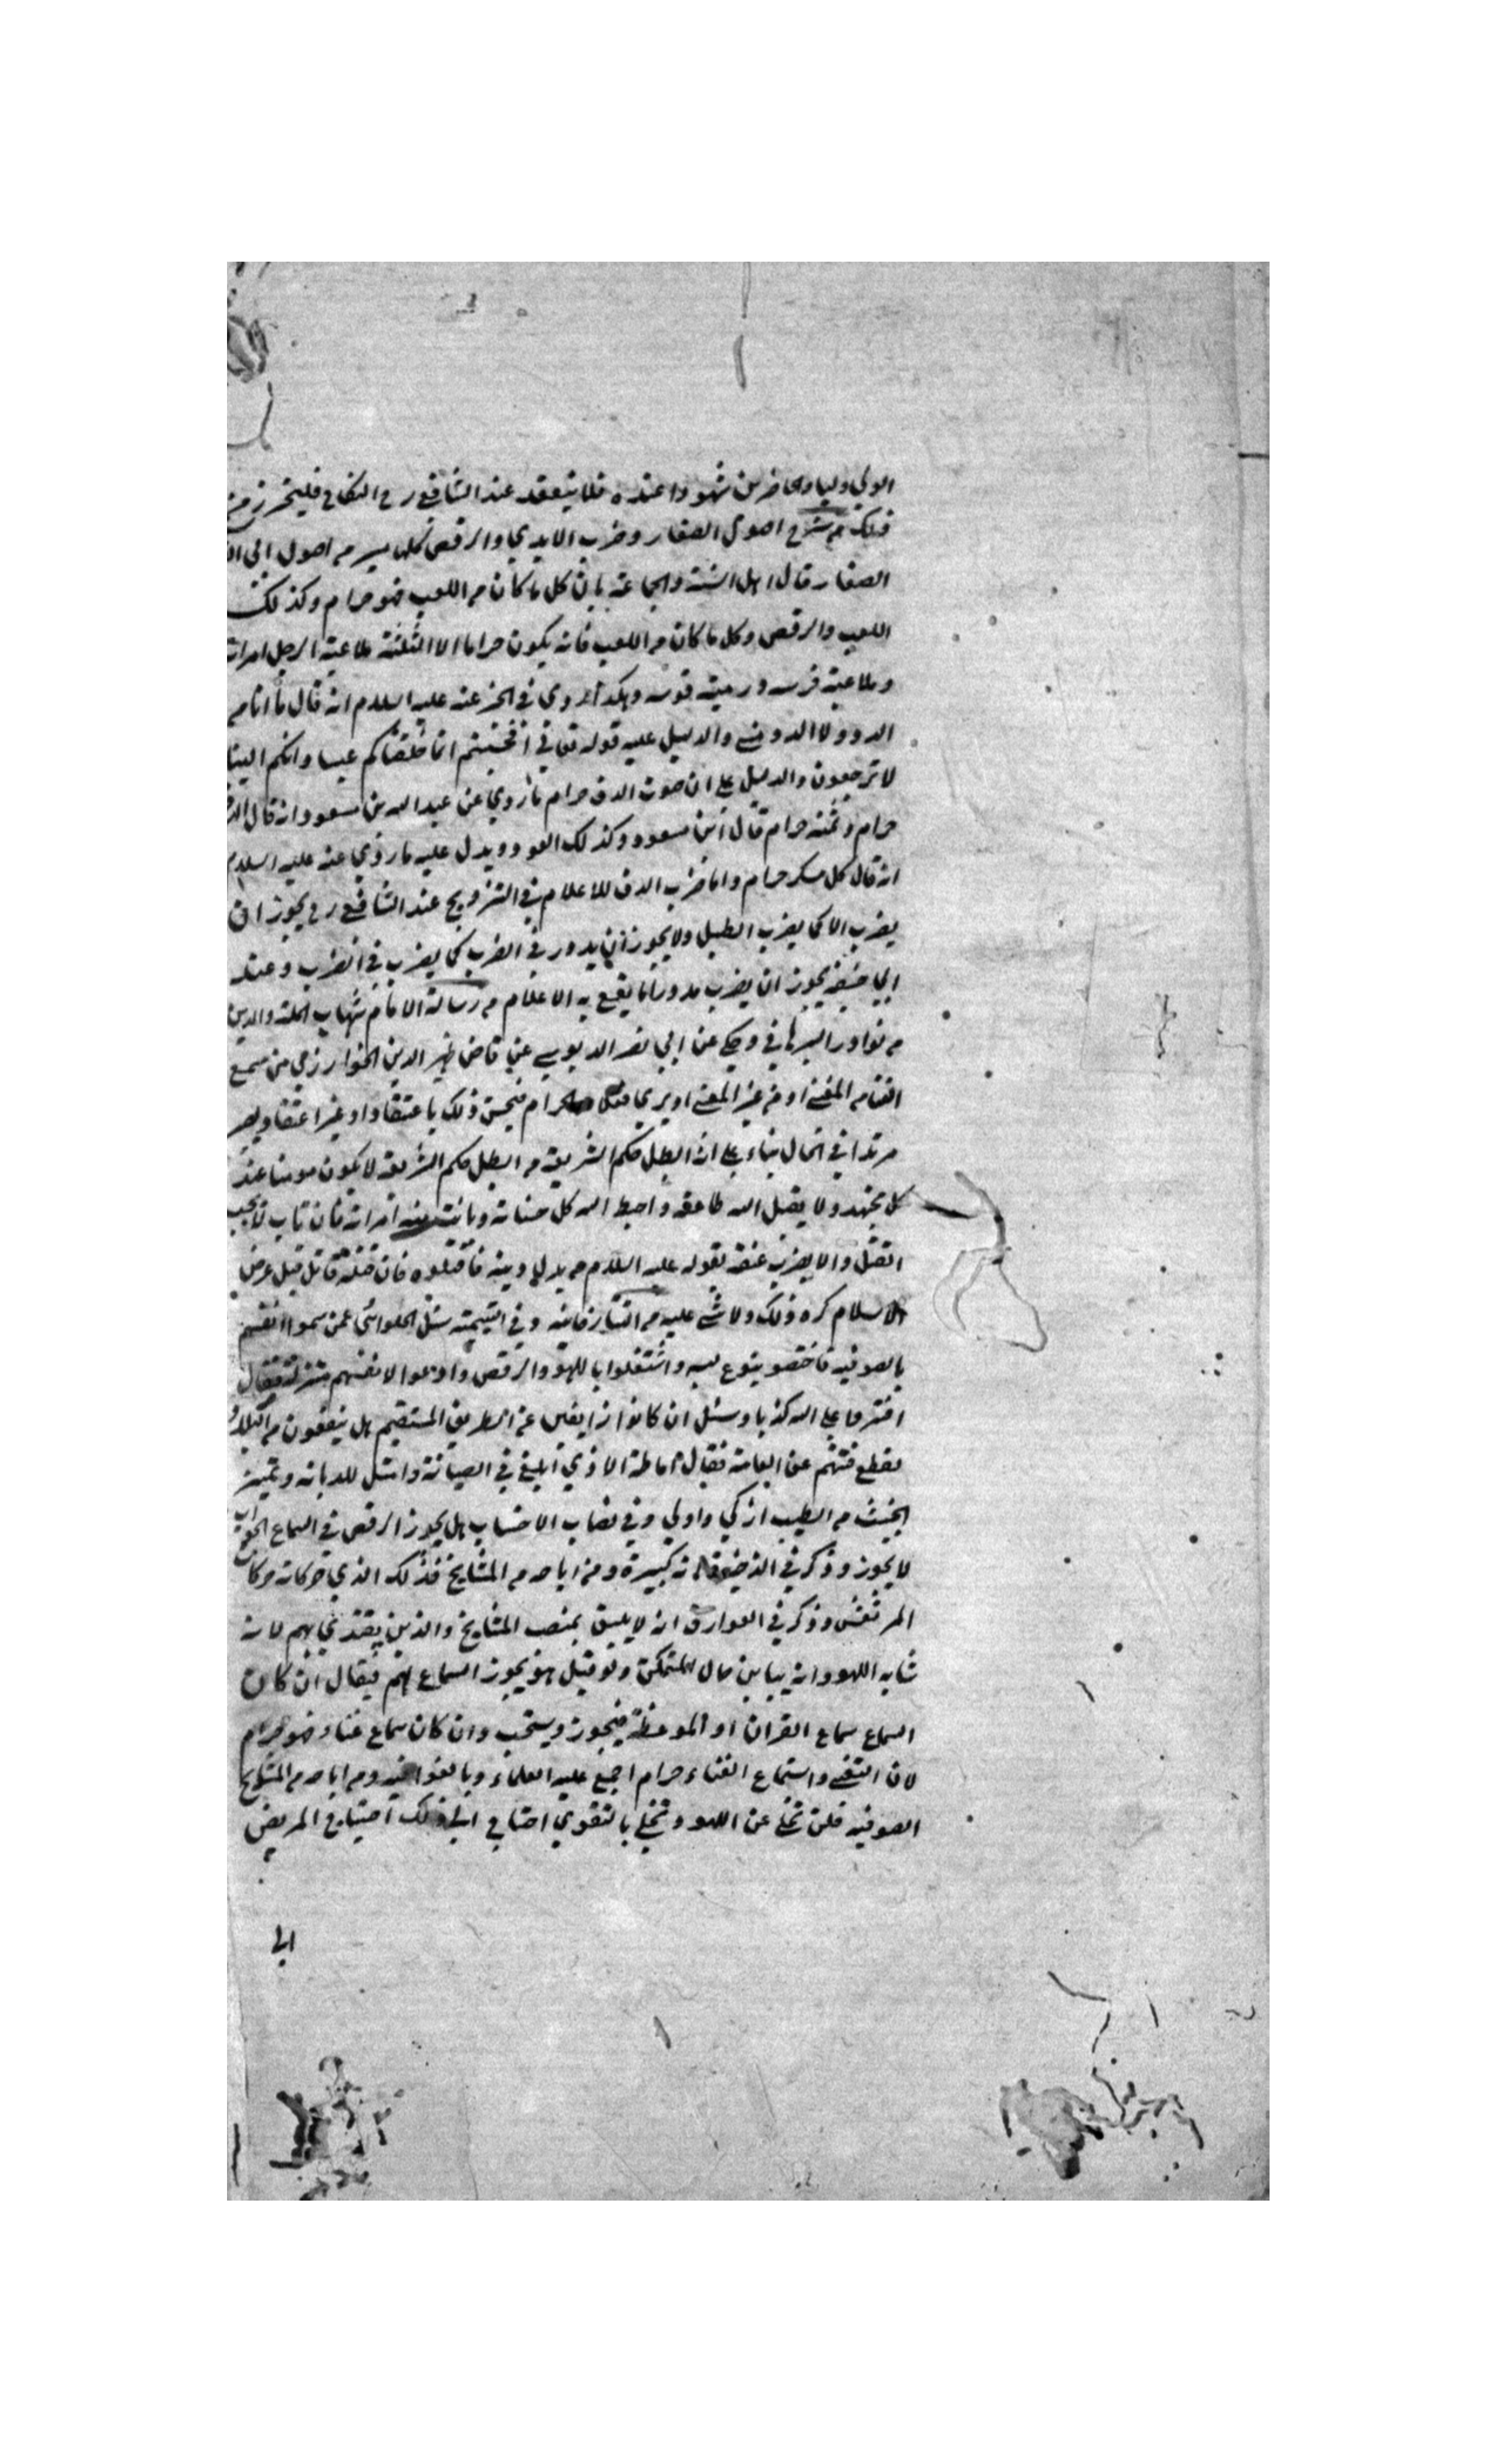 الولي وليا والحاضرين شهودا عنده فلا ينعقد عند الشافعي رح النكاح فليتحرز من
ذلك من شرح اصول الصفار وضرب الايدي والرقص من اصول ابي
الصفار قال اهل السنة والجماعة بان كل ما كان من اللعب فهو حرام وكذلك
اللعب والرقص وكل ما كان من اللعب فانه يكون حراما الا الثلثة ملاعبة الرجل امراته
وملاعبة فرسه ورمية قوسه وهكذا روي في الخبر عنه عليه السلام انه قال ما انا من
الدد ولا الدد مني والدليل عليه قوله تعالي افحسبتم انما خلقناكم عبسا وانكم الينا
لا ترجعون والدليل علي ان صوت الدف حرام ما روي عن عبد الله بن مسعود انه قال
حرام وثمنه حرام قال ابن مسعود وكذلك العود ويدل عليه ما روي عنه عليه السلام
انه قال كل مسكر حرام واما ضرب الدف للاعلام في التزويج عند الشافعي رح يجوز ان
يضرب الا كما يضرب الطبل ولا يجوز ان يدور في الضرب كما يضرب في الضرب وعند
ابي حنيفة يجوز ان يضرب مدورا ما يقع به الاعلام من رسالة الامام شهاب الملة والدين
من نوادر البرهاني وحكي عن ابي نصر الدبوسي عن قاضي ظهير الدين الخوارزمي من سمع
الغنا من المغني او من غير المغني او يري فعلا من الحرام فيحسن ذلك باعتقاد او غير اعتقاد يصر
مرتدا في الحال بناء علي انه ابطل حكم الشريعة من ابطل حكم الشريعة لا يكون مومنا عند
كل مجتهد ولا يقبل الله طاعته واحبط الله كل حسناته وبانت منه امراته فان تاب لا يجب
القتل والا يضرب عنقه لقوله عليه السلام من بدل دينه فاقتلوه فان قتله قاتل قبل عرض
الاسلام كره ذلك ولا شي عليه من التتارخانيه وفي اليتيمة سئل الحلوائي عمن سموا انفسهم
بالصوفيه فاختصو بنوع لبسه واشتغلوا باللهو والرقص وادعوا لانفسهم منزلة فقال
افتروا علي الله كذبا وسئل ان كانوا زايغين عن الطريق المستقيم هل ينفون من البلاد
لقطع فتنتهم عن العامة فقال اماطة الاذي ابلغ في الصيانة وامثل للديانة وتميز
الخبيث من الطيب ازكي واولي وفي نصاب الاحتساب هل يجوز الرقص في السماع الجواب
لا يجوز وذكر في الذخيرة انه كبيرة ومن اباحه من المشايخ فذلك الذي حركاته حركات
المرتعش وذكر في العوارف انه لا يليق بمنصب المشايخ والذين يقتدي بهم لانه
شابه اللهو وانه يباين حال المتمكن ولو قيل هو يجوز السماع لهم فيقال ان كان
السماع سماع القران او الموعظة فيجوز ويستحب وان كان سماع غناء فهو حرام
لان التغني واستماع الغناء حرام اجمع عليه العلماء وبالغوا فيه ومن اباحه من المشايخ
الصوفيه فلمن تخلي عن اللهو وتحلي بالتقوي احتاج الي ذلك احتياج المريض
الي